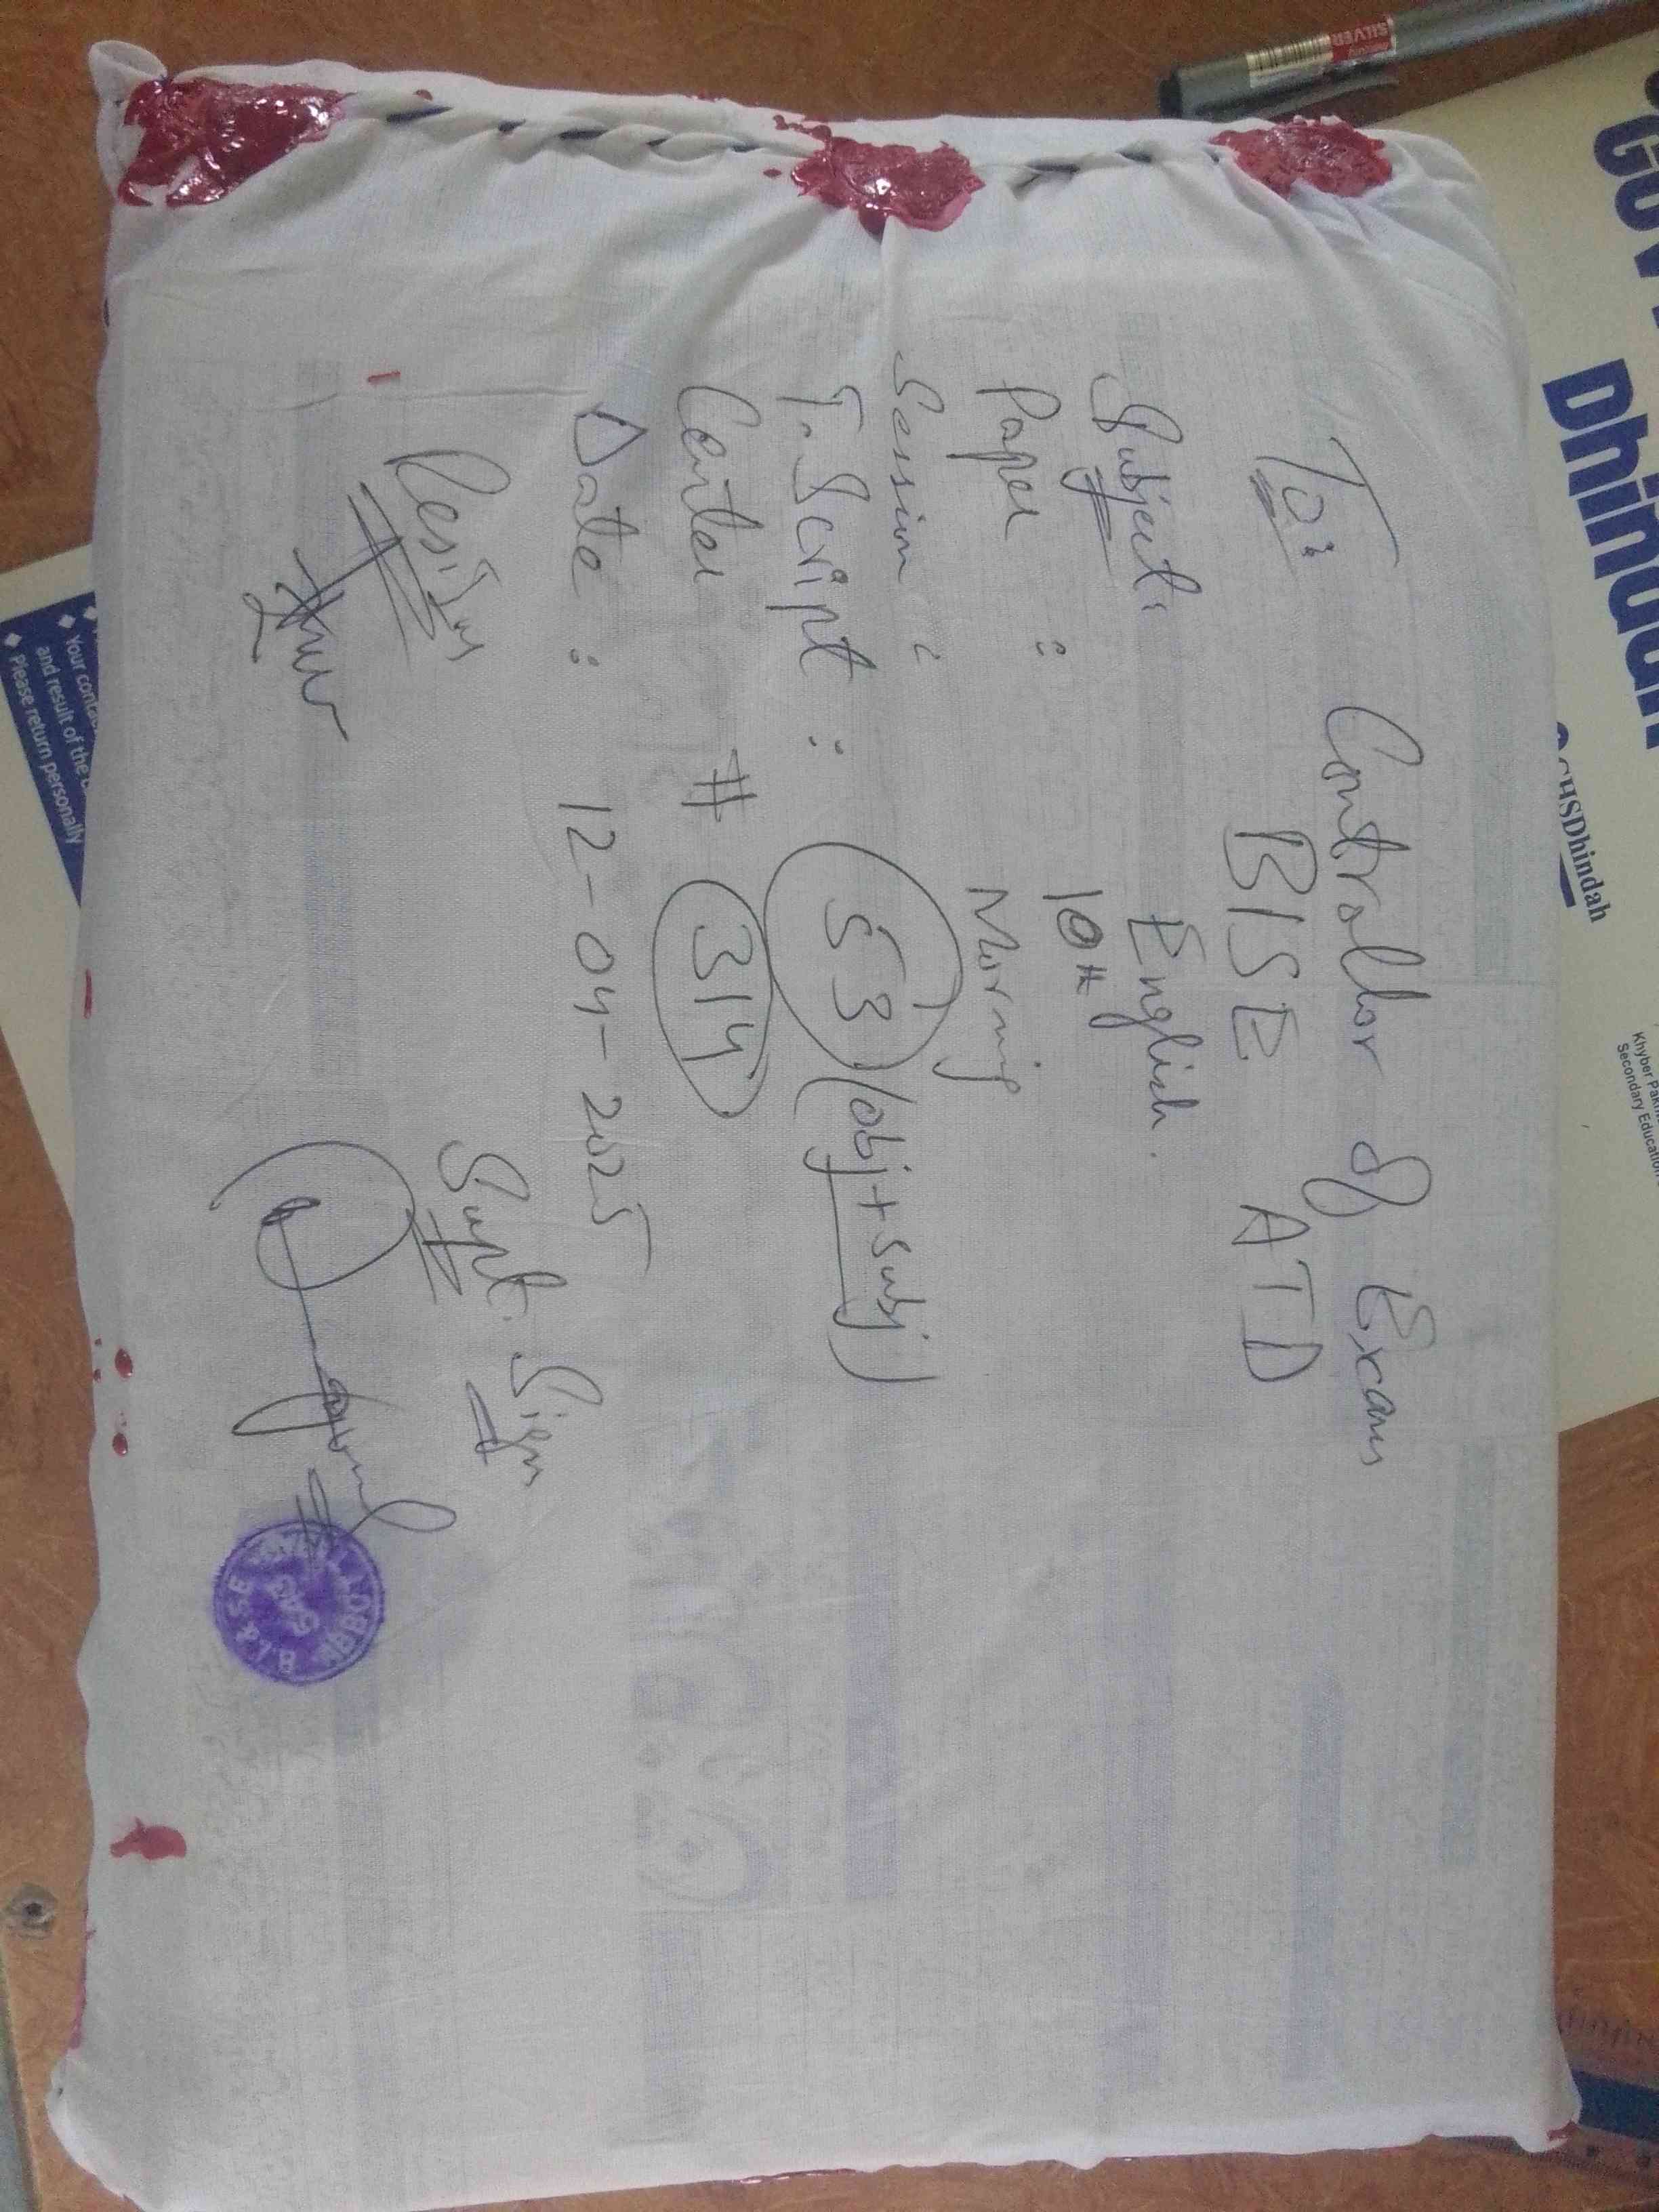 To:
Controllor of Exams
BISE ATD
Subject: English.
Paper : 10th
Session : Morning
T. Script : 53 (obj + subj)
Center # 314
Date : 12-04-2025
Supt. Sign
B.I.&SE
ABBOTTABAD
GOVT
Dhindah
GGHSDhindah
Secondary Education
SILVER
Your
and result of the
Please return personally